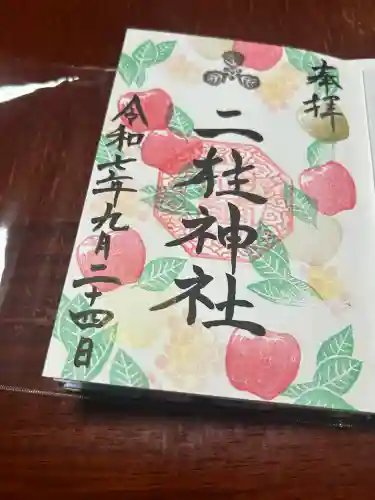 奉拝
二柱神社
令和七年九月二十四日